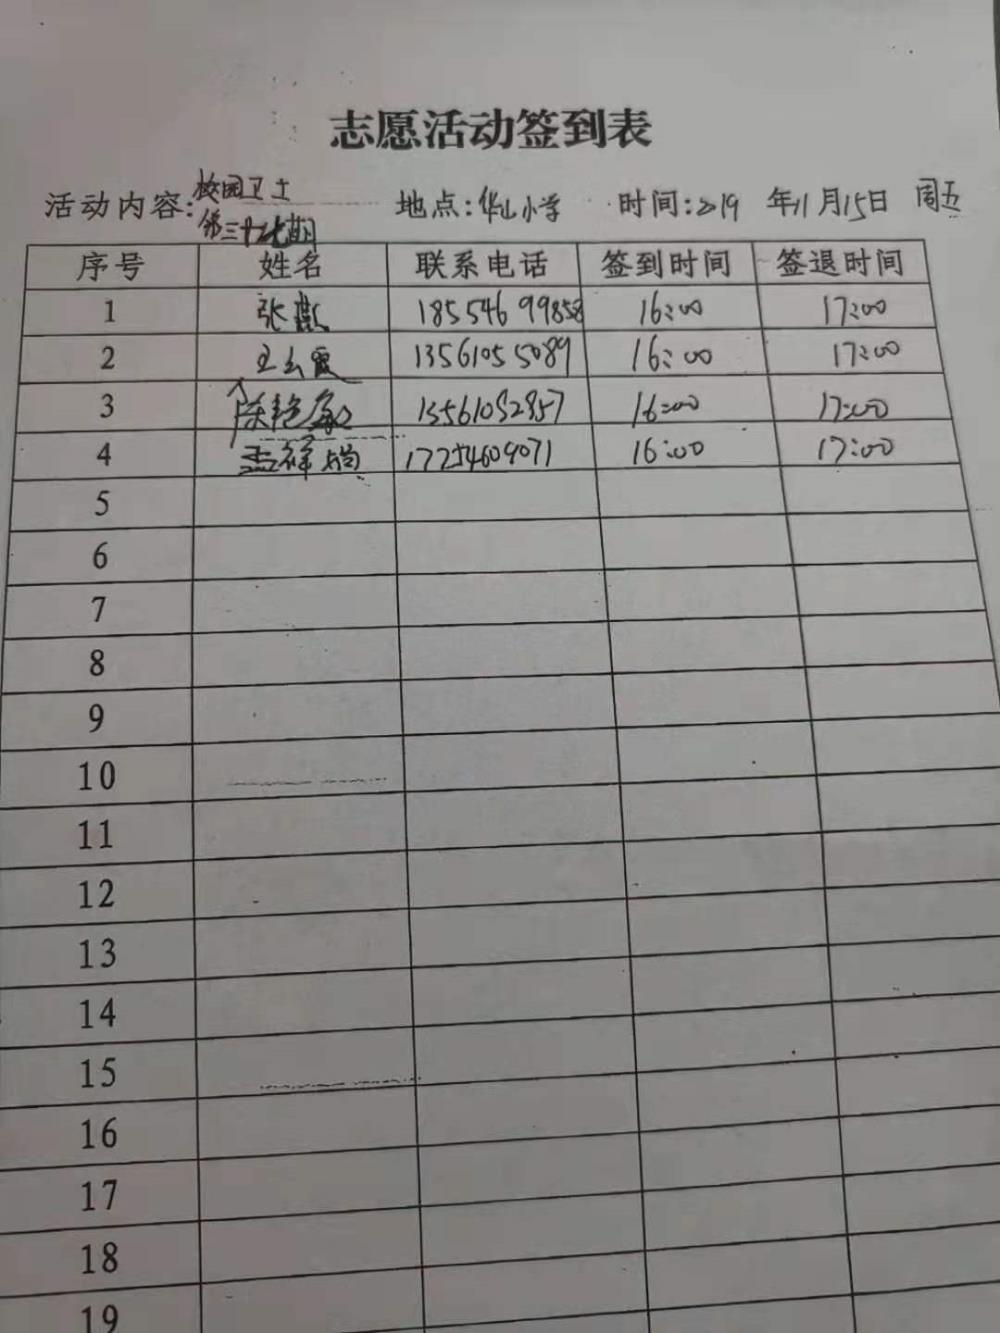 志愿活动签到表
活动内容:校园卫士 地点:华山小学 时间:2019 年11月15日 周五
第三十七期
序号 姓名 联系电话 签到时间 签退时间
1 张燕 18554699858 16:00 17:00
2 王云霞 13561055089 16:00 17:00
3 陈艳敏 13561052957 16:00 17:00
4 孟祥娟 17254609071 16:00 17:00
5
6
7
8
9
10
11
12
13
14
15
16
17
18
19